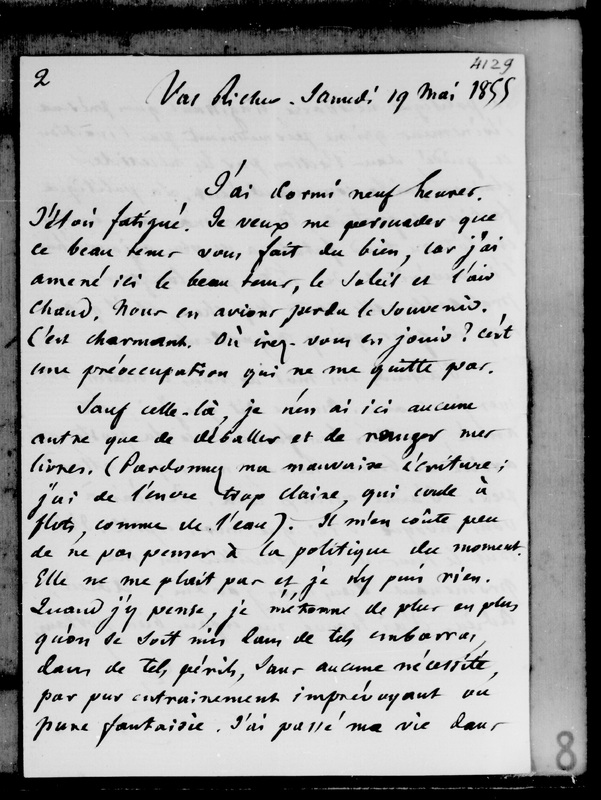 4129
2
Val Richer. Samedi 19 Mai 1855
J'ai dormi neuf heures.
J'étois fatigué. Je veux me persuader que
ce beau tems vous fait du bien, car j'ai
amené ici le beau tems, le soleil et l'air
chaud. Nous en avions perdu le souvenir.
C'est charmant. Où irez-vous en jouir ? C'est
une préoccupation qui ne me quitte pas.
Sauf celle-là, je n'en ai ici aucune
autre que de déballer et de ranger mes
livres. (Pardonnez ma mauvaise écriture ;
j'ai de l'encre trop claire, qui coule à
flots, comme de l'eau). Il m'en coûte peu
de ne pas penser à la politique du moment.
Elle ne me plaît pas et je n'y puis rien.
Quand j'y pense, je m'étonne de plus en plus
qu'on se soit mis dans de tels embarras,
dans de tels périls, sans aucune nécessité,
par pur entrainement imprévoyant ou
pure fantaisie. J'ai passé ma vie dans
8